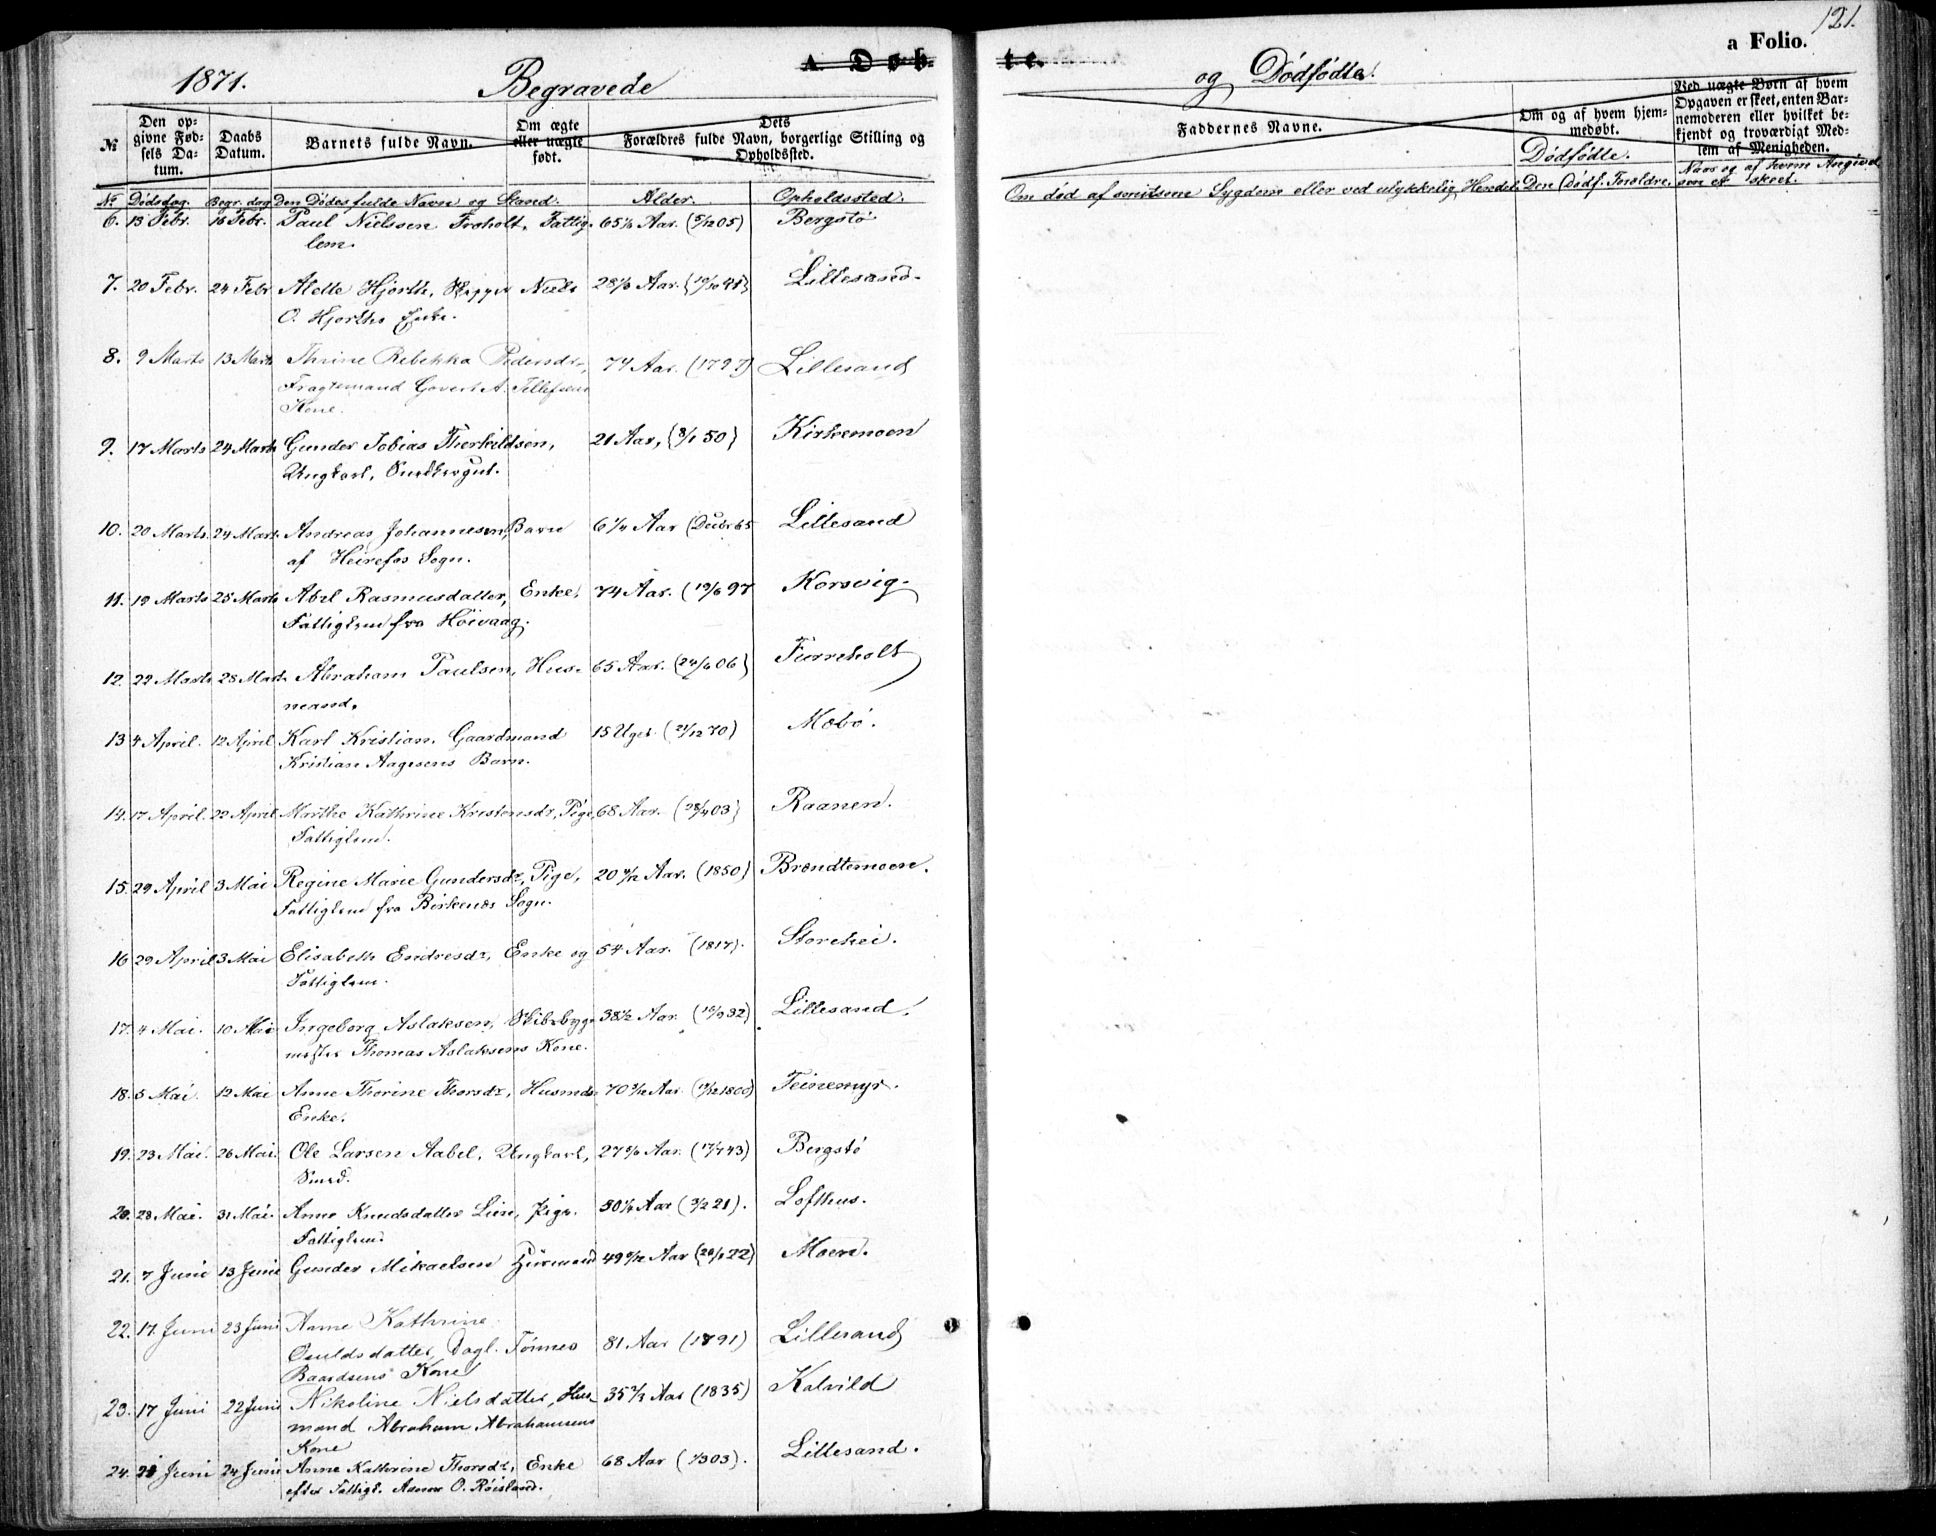 121.
a Folio.
1871. Begravede A. Døb-
te. og Dødfødte.
№ Den opgivne Fødsels Datum. Daabs Datum. Barnets fulde Navn. Om ægte eller uægte født. Dets Forældres fulde Navn, borgerlige Stilling og Opholdssted.
Faddernes Navne. Om og af hvem hjemmedøbt. Ved uægte Børn af hvem Opgaven er skeet, enten Barnemoderen eller hvilket bekjendt og troværdigt Medlem af Menigheden.
Dødfødte.
№ Dødsdag. Begr. dag Den Dødes fulde Navn og Stand. Alder. Opholdssted.
Om død af smitsom Sygdom eller ved ulykkelig Hendel. Den Dødf. Foreldre. Naar og af hvem Angivelsen er skeet.
6. 13 Febr. 16 Febr. Paul Nielssen Froholt, Fattig- 65 1/6 Aar. (5/12 05) Bergstø
lem.
7. 20 Febr. 24 Febr Alette Hjorth, Skipper Niels 28 Aar. Lillesand.
O. Hjorths Enke.
8. 9 Marts 13 Marts Thrine Rebekka Pedersdr, 74 Aar. (1797) Lillesand
Fragtemand Govert A. Tellefsens
Kone.
9. 17 Marts 24 Marts Gunder Tobias Therkildsen, 21 Aar, (8/1 50) Kirkemoen
Ungkarl, Snedkergut.
10. 20 Marts. 24 Marts. Andreas Johannesen, Barn 6 1/4 Aar (Decbr 65 Lillesand
af Heirefos Sogn.
11. 19 Marts 25 Marts Abel Rasmusdatter, Enke, 74 Aar. (19/6 97 Korsvig.
Fattiglem fra Høivaag.
12. 22 Marts 28 Marts Abraham Paulsen, Hus- 65 Aar. (24/6 06) Furreholt
mand.
13 4 April. 12 April Karl Kristian, Gaardmand 15 Uger (21/12 70) Mæbø.
Kristian Aagesens Barn.
14. 17 April. 22 April Marthe Kathrine Kristensdr, Pige, 68 Aar. (28/4 03) Raanen.
Fattiglem.
15. 29 April 3 Mai Regine Marie Gundersdr, Pige, 20 Aar. (1850) Brændtemoen.
Fattiglem fra Birkenæs Sogn.
16 29 April 3 Mai Elisabeth Endresdr, Enke og 54 Aar. (1817). Storehei.
Fattiglem.
17. 4 Mai. 10 Mai Ingeborg Aslaksen, Skibsbygn- 38 1/2 Aar. (10/9 32) Lillesand.
mester Thomas Aslaksens Kone.
18. 5 Mai. 12 Mai Anne Thorine Thorsdr, Husmds- 70 Aar. Teinemyr.
Enke.
19. 23 Mai. 26 Mai. Ole Larsen Aabel, Ungkarl, 27 5/6 Aar. (17/7 43) Bergstø
Smed.
20. 28 Mai. 31 Mai. Anne Knudsdatter Lien, Pige. 50 Aar (3/2 21). Lofthus.
Fattiglem.
21. 7 Juni 13 Juni Gunder Mikaelsen 49 Aar Moen.
22. 17. Juni 23 Juni Anne Kathrine
Osuldsdatter, Dagl. Tønnes 81 Aar (1791) Lillesand
Baardsens Kone
23. 17 Juni 22 Juni Nikoline Nielsdatter, Hus- 35 2/3 Aar (1835) Kalvild
mand Abraham Abrahamsens
Kone
24. 21 Juni 24 Juni Anne Kathrine Thorsdr, Enke 68 Aar Lillesand.
efter Fattigl. O. Røisland.